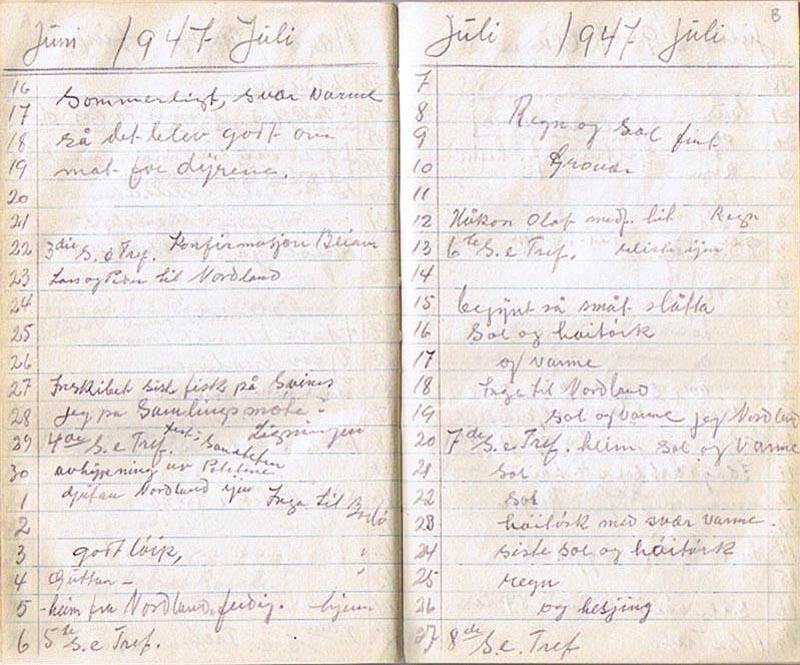 Juni 1947 Juli
16
17 Sommerligt, svær varme
18 så det blev godt om
19 mat for dyrene.
20
21
22 3die S. e Tref. Konfirmasjon Beiarn
23 Lars og Peder til Nordland
24
25
26
27 Inskibet siste fisk på
28 jeg på Samlingsmöte
29 4de S. e Tref.
30 av
1 Nordland igjen Inga til Bodö
2
3 godt
4 Guttan -
5 - heim fra Nordland ferdig.
6 5te S. e Tref.
8
Juli 1947 Juli
7
8 Regn og Sol fint
9
10 Grovær
11
12 Håkon Olaf hit Regn
13 6te S. e Tref.
14
15 begynt så småt slåtta
16 Sol og höitörk
17 og varme
18 Inga til Nordland
19 Sol og varme jeg Nordland
20 7de S. e. Tref. heim Sol og varme
21 Sol
22 Sol
23 höitörk med svær varme.
24 siste Sol og höitörk
25 regn
26 og hesjing
27 8de S. e. Tref